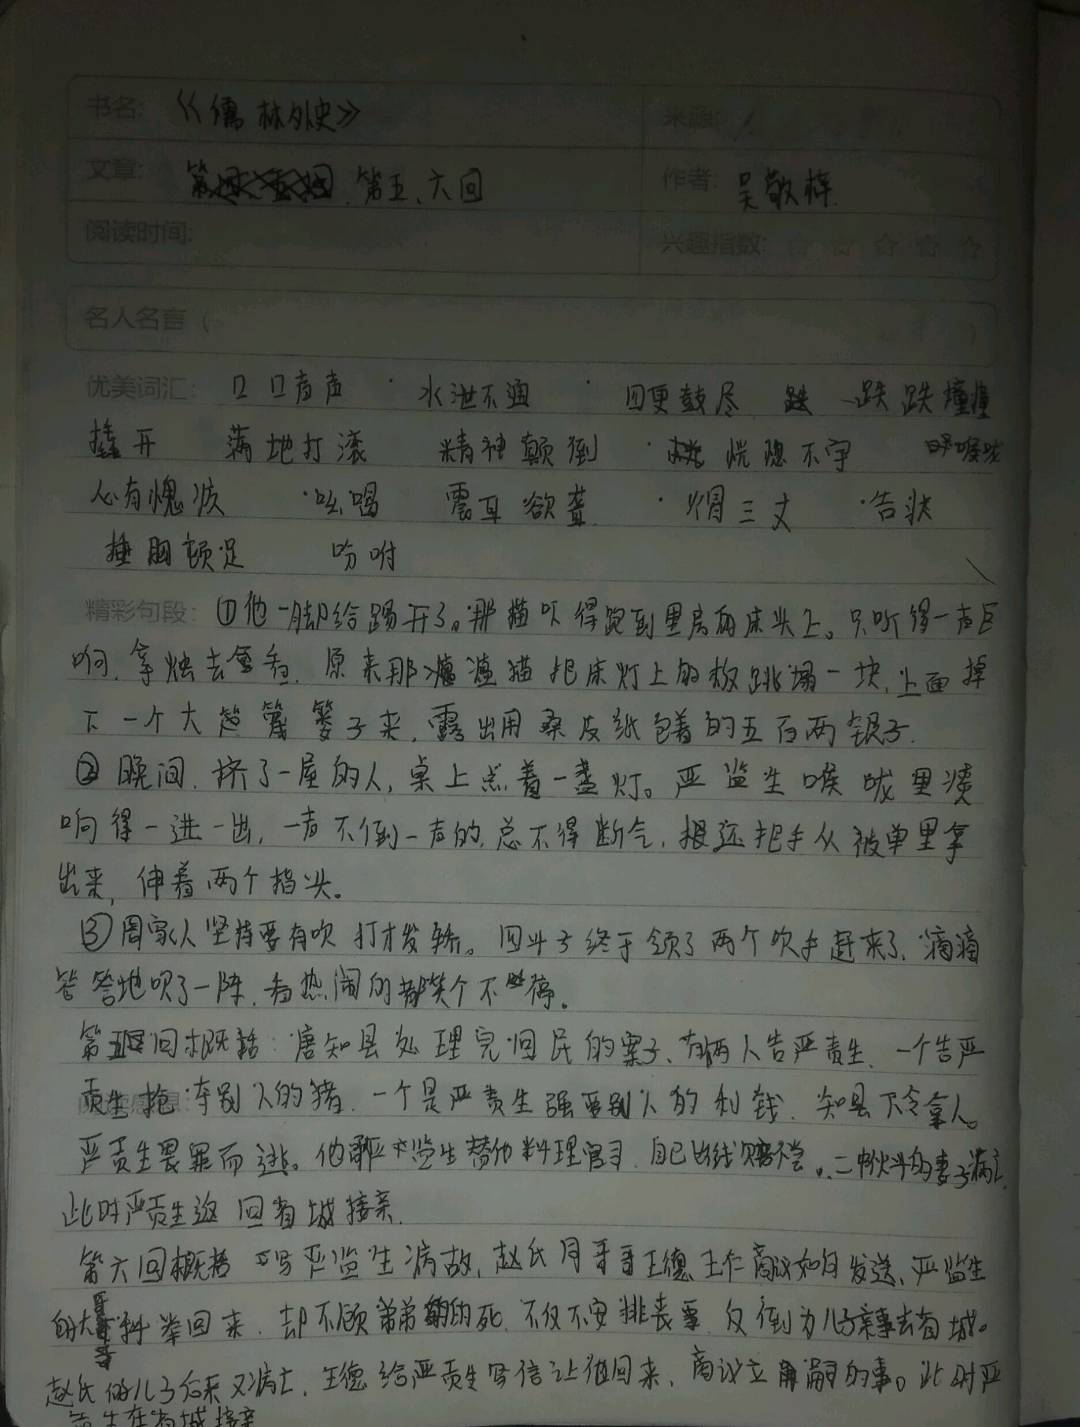 书名: 《儒林外史》 来源:
文章: 第五、六回 作者: 吴敬梓
阅读时间: 兴趣指数: ☆ ☆ ☆ ☆ ☆
名人名言 ( )
优美词汇: 口口声声 水泄不通 四更鼓尽 跌跌撞撞
撬开 满地打滚 精神颠倒 恍惚不宁 喉咙
心有愧疚 吆喝 震耳欲聋 三丈 告状
捶胸顿足 吩咐
精彩句段: ①他一脚给踢开了。那猫吓得跑到里房的床头上。只听得一声巨
响, 拿烛去看, 原来那瘟猫把床灯上的板跳塌一块, 上面掉
下一个大篾篓子来, 露出用桑皮纸包着的五百两银子.
②晚间, 挤了一屋的人, 桌上点着一盏灯。严监生喉咙里痰
响得一进一出, 一声不倒一声的, 总不得断气, 还把手从被单里拿
出来, 伸着两个指头。
③周家人坚持要有吹打才发轿。四斗子终于领了两个吹手赶来了, 滴滴
答答地吹了一阵, 看热闹的都笑个不停。
第五回概括: 唐知县处理完回民的案子, 有俩人告严贡生, 一个告严
贡生抢夺别人的猪, 一个是严贡生强要别人的利钱, 知县下令拿人。
严贡生畏罪而逃。他严监生替他料理官司, 自己出钱赔偿。的妻子病亡,
此时严贡生返回省城接亲.
第六回概括 写严监生病故, 赵氏同哥哥王德、王仁商议如何发送, 严监生
的大哥科举回来, 却不顾弟弟的死, 不仅不安排丧事, 反倒为儿子亲事去省城。
赵氏的儿子后来又病亡, 王德给严贡生写信让他回来, 商议立嗣的事。此时严
贡生在省城接亲